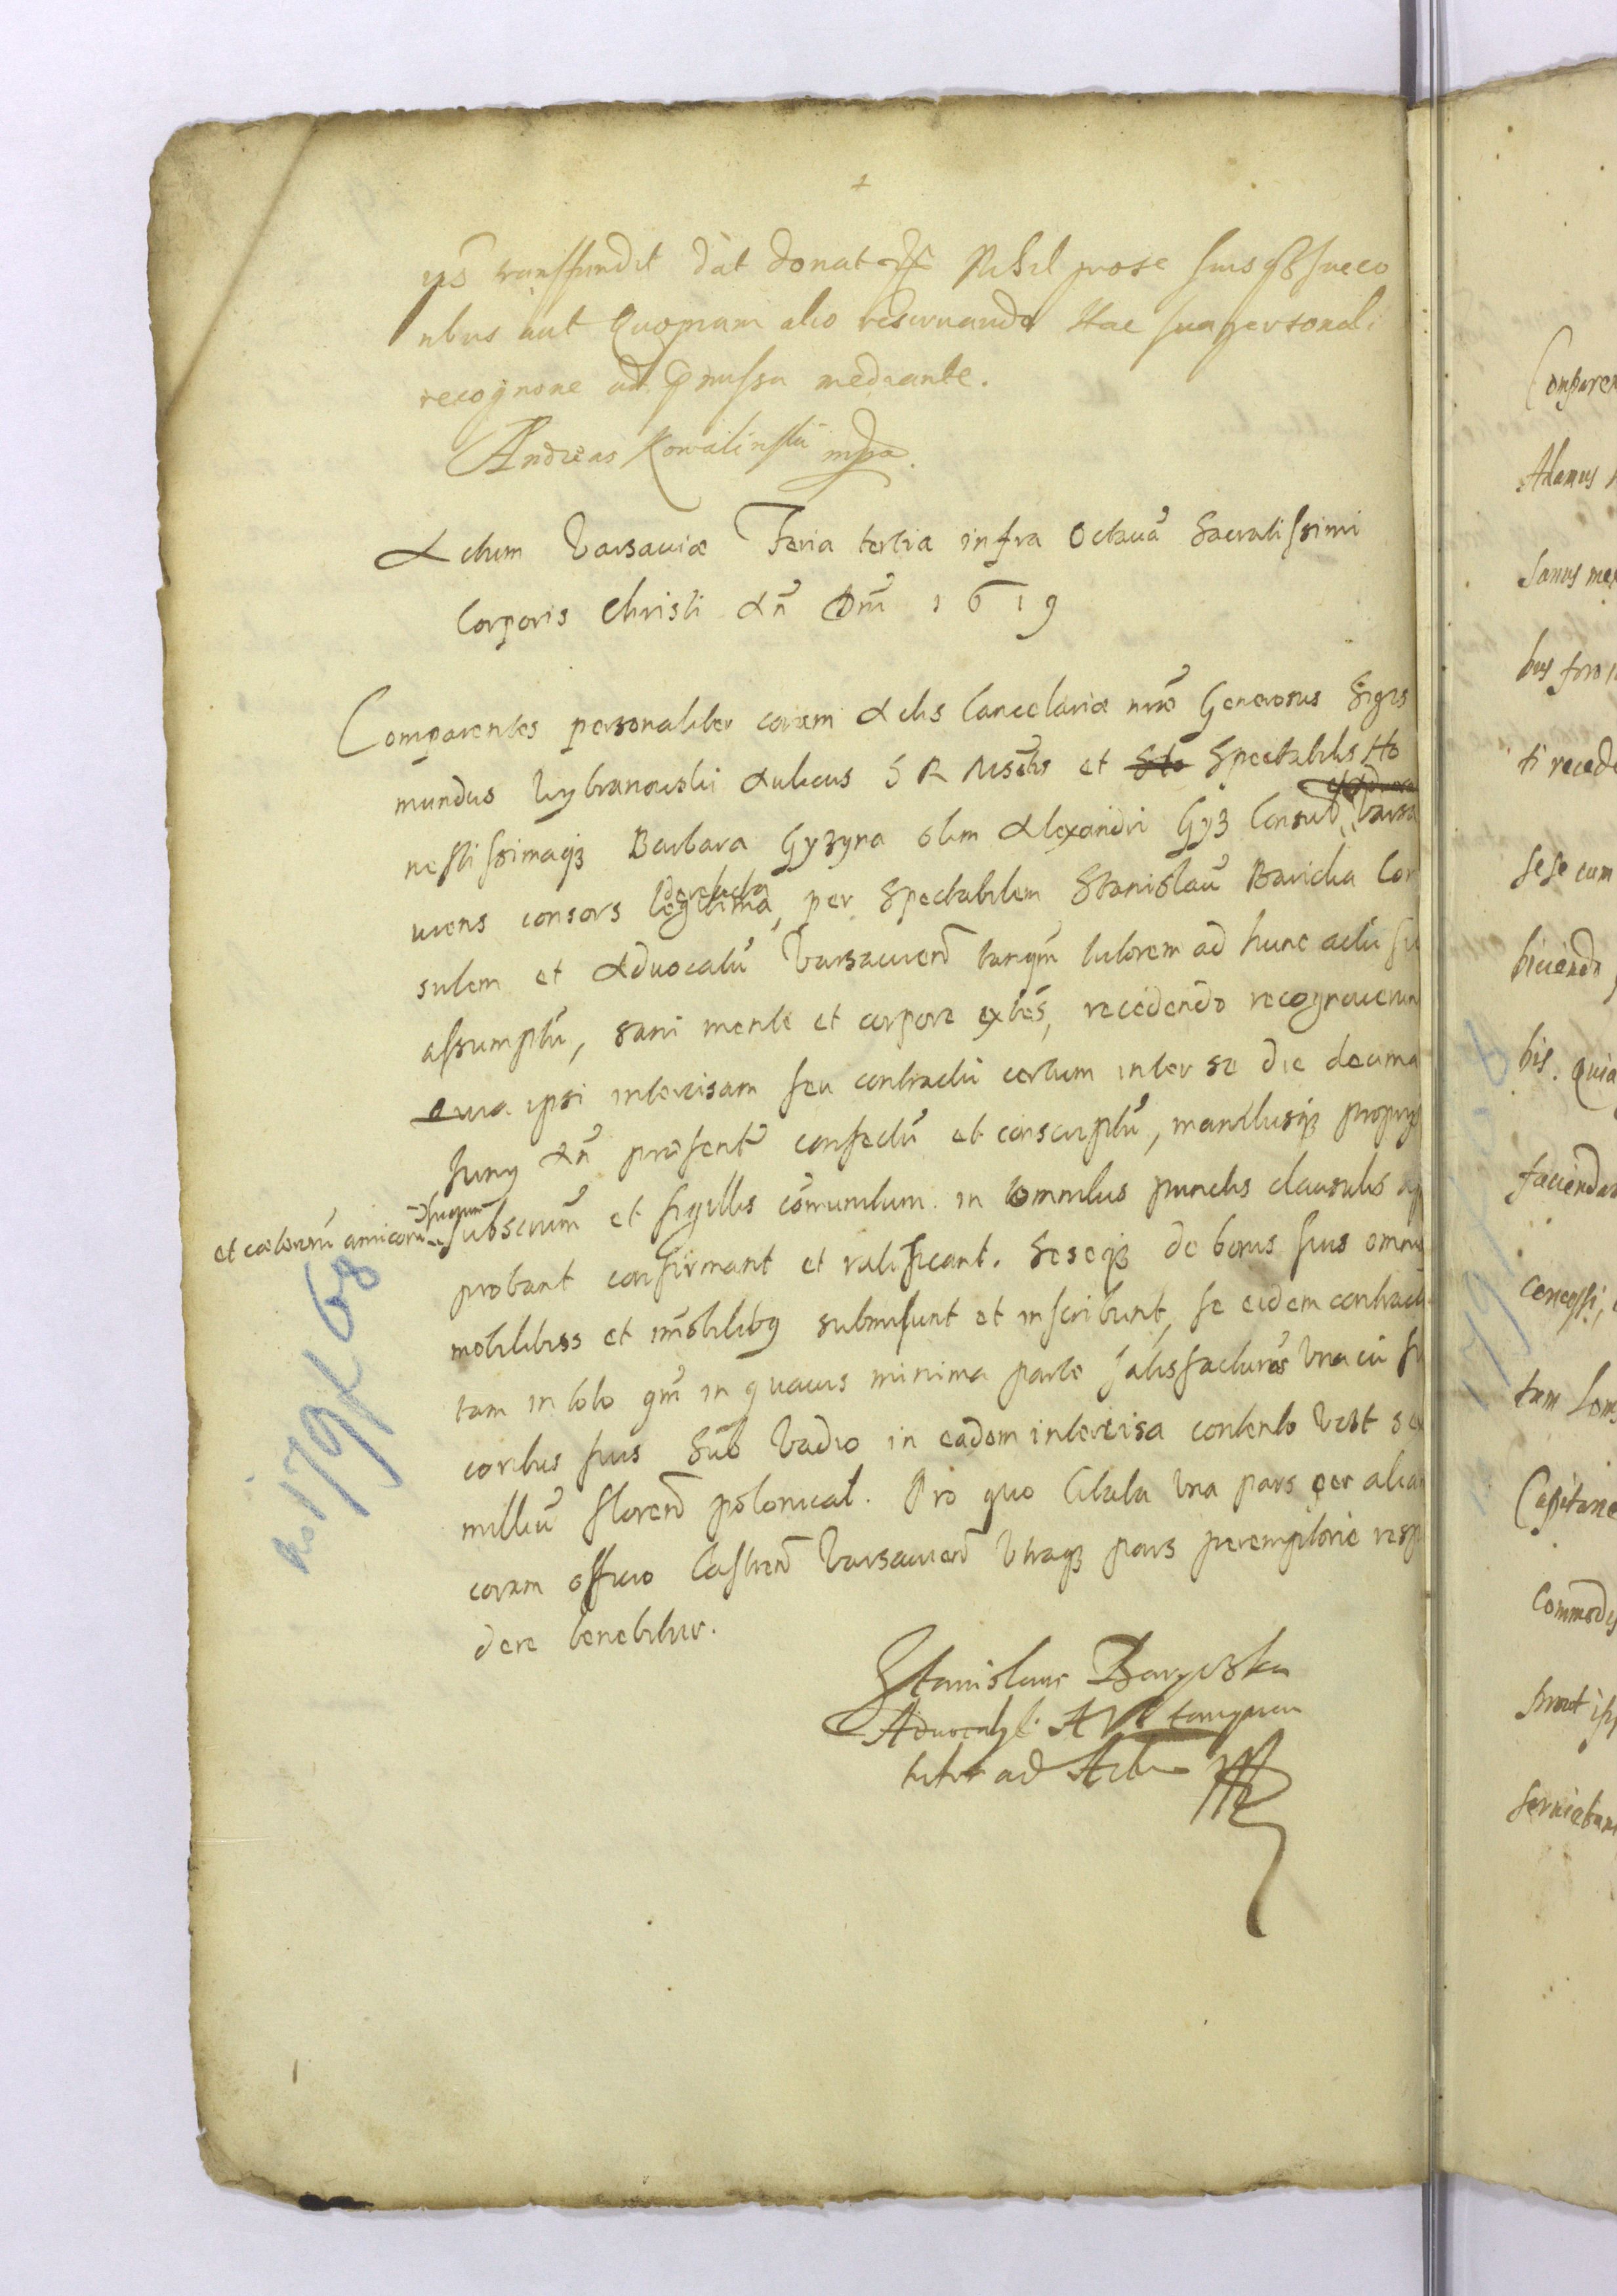 ys transfundit dat donat Nihil prose suis sueco
ribus aut Quopiam alio reservando Hac sua personali
recognone ad pmissa mediante.
Andreas Kowalinski mpa.
Actum Varsaviæ Feria tertia infra Octavā Sacratissimi
Corporis Christi Añ Dñi 1619
Comparentes personaliter coram Actis Cancelariæ Generosus Sigis
mundus Wybranowski Aulicus S R Mščtis et Spectabilis Ho
nestissimaqȝ Barbara Gyzyna olim Alexandri Gyz Consul Varsa
viens consors legitima derelicta, per Spectabilem Stanislaū Baricka Con
sulem et Advocatū Varsavien tanqm tutorem ad hunc actū su
assumptū, sani mente et corpore extes, recedendo recognoverun
quia ipsi intercisam seu contractū certum inter se die decima
Juny Añ præsenti confectū et conscriptū, manibusqȝ proprys
et cæterorū amicorū
subscrium et sigillis cōmunitum in omnibus punctis clausulis ap
probant confirmant et ratificant. Seseqȝ de bonis suis omnib
mobilibus et imobilibus submisunt et inscribunt, se eidem contractu
tam in toto qm in quavis minima parte satisfacturos Una cū su
coribus suis Sub Vadio in eadem intercisa contento Vdlt sex
milliū floren polonical. Pro quo Citata Una pars per aliam
coram officio Castren Varsavien Utraqȝ pars peremptorie resp
dere tenebitur.
Stanislaus Baryczka
Advocatus tanquam
tutor ad Actu
No 179 K 68
Comparen
Adamus
sanus me
bus
ti recede
sese cum
biciendo
bis. Quia
faciendas
concessi,
tam
Capitane
Commodis
prout
serviebant